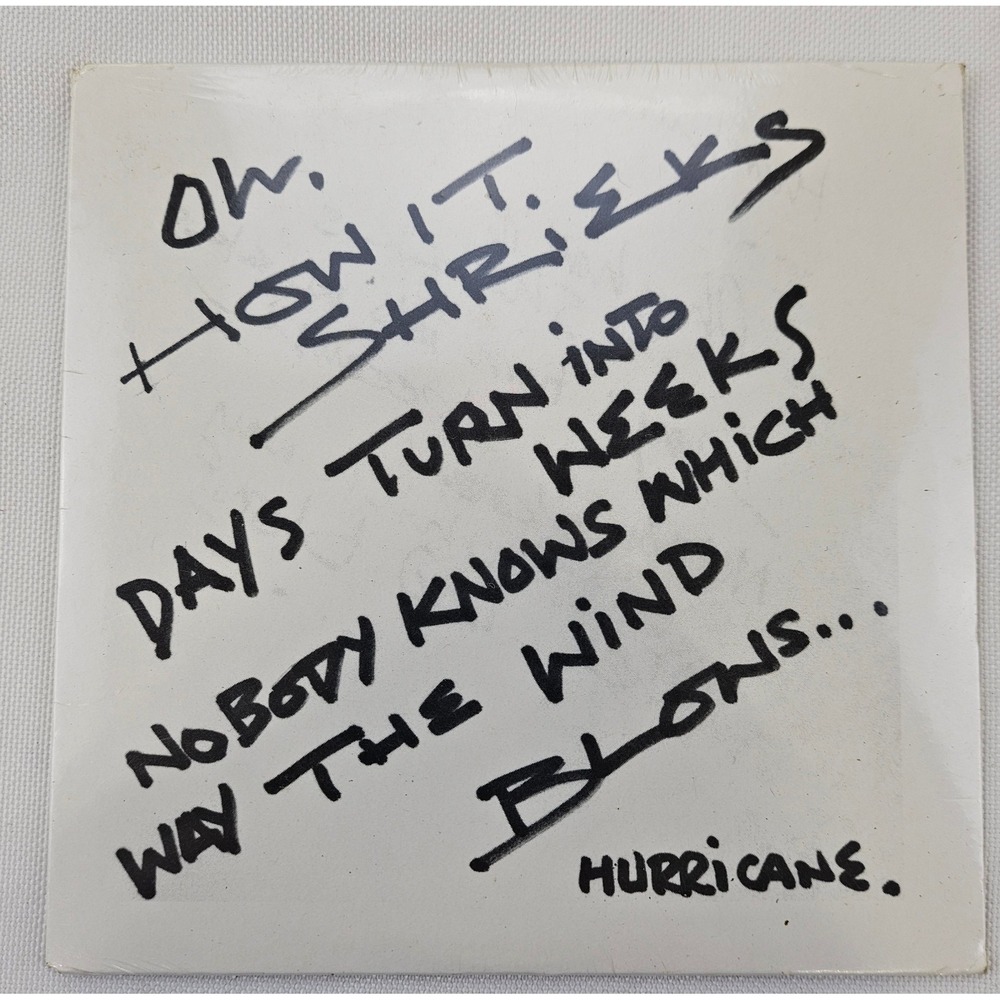 OW.
HOW IT.
SHRiEKS
DAYS TURN iNTO
WEEKS
NOBODY KNOWS WHiCH
WAY THE WiND
BLOWS...
HURRiCANE.